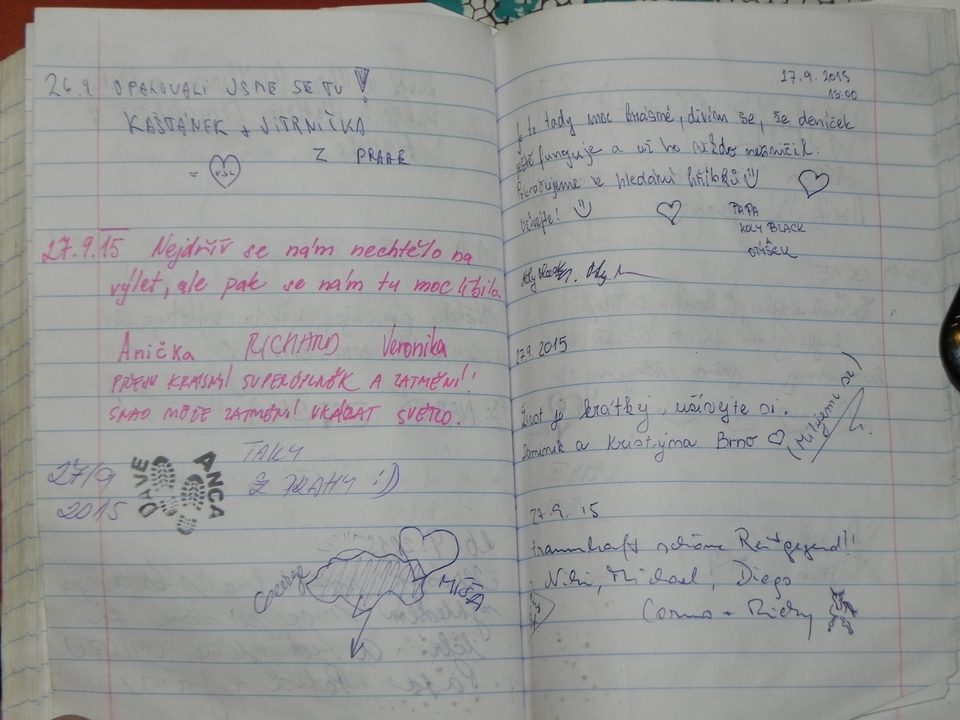 26.9. OPAKOVALI JSME SE TU!
KAŠTÁNEK + JITRNIČKA
Z PRAHY
=
27.9.15 Nejdřív se nám nechtělo na
výlet, ale pak se nám tu moc líbilo.
Anička RICHARD Veronika
PŘEJU KRÁSNÝ SUPERÚPLNĚK A ZATMĚNÍ!
SNAD MŮŽE ZATMĚNÍ UKÁZAT SVĚTLO.
27/9
2015
DAVE
ANCA
TAKY
Z PRAHY :)
George
MÍŠA
27.9.2015
13.00
Je to tady moc krásné, divím se, že deníček
ještě funguje a už ho někdo nezničil.
Pokračujeme v hledání hříbků :)
Užívejte! :)
TAŤA
KOLY BLACK
27.9. 2015
Život je krátký, užívejte si.
Dominik a Kristýna Brno
(Milujeme se)
27.9. 15
traumhaft schöne Reitgegend!!
Niki, Michael, Diego
Cosmo + Ricky